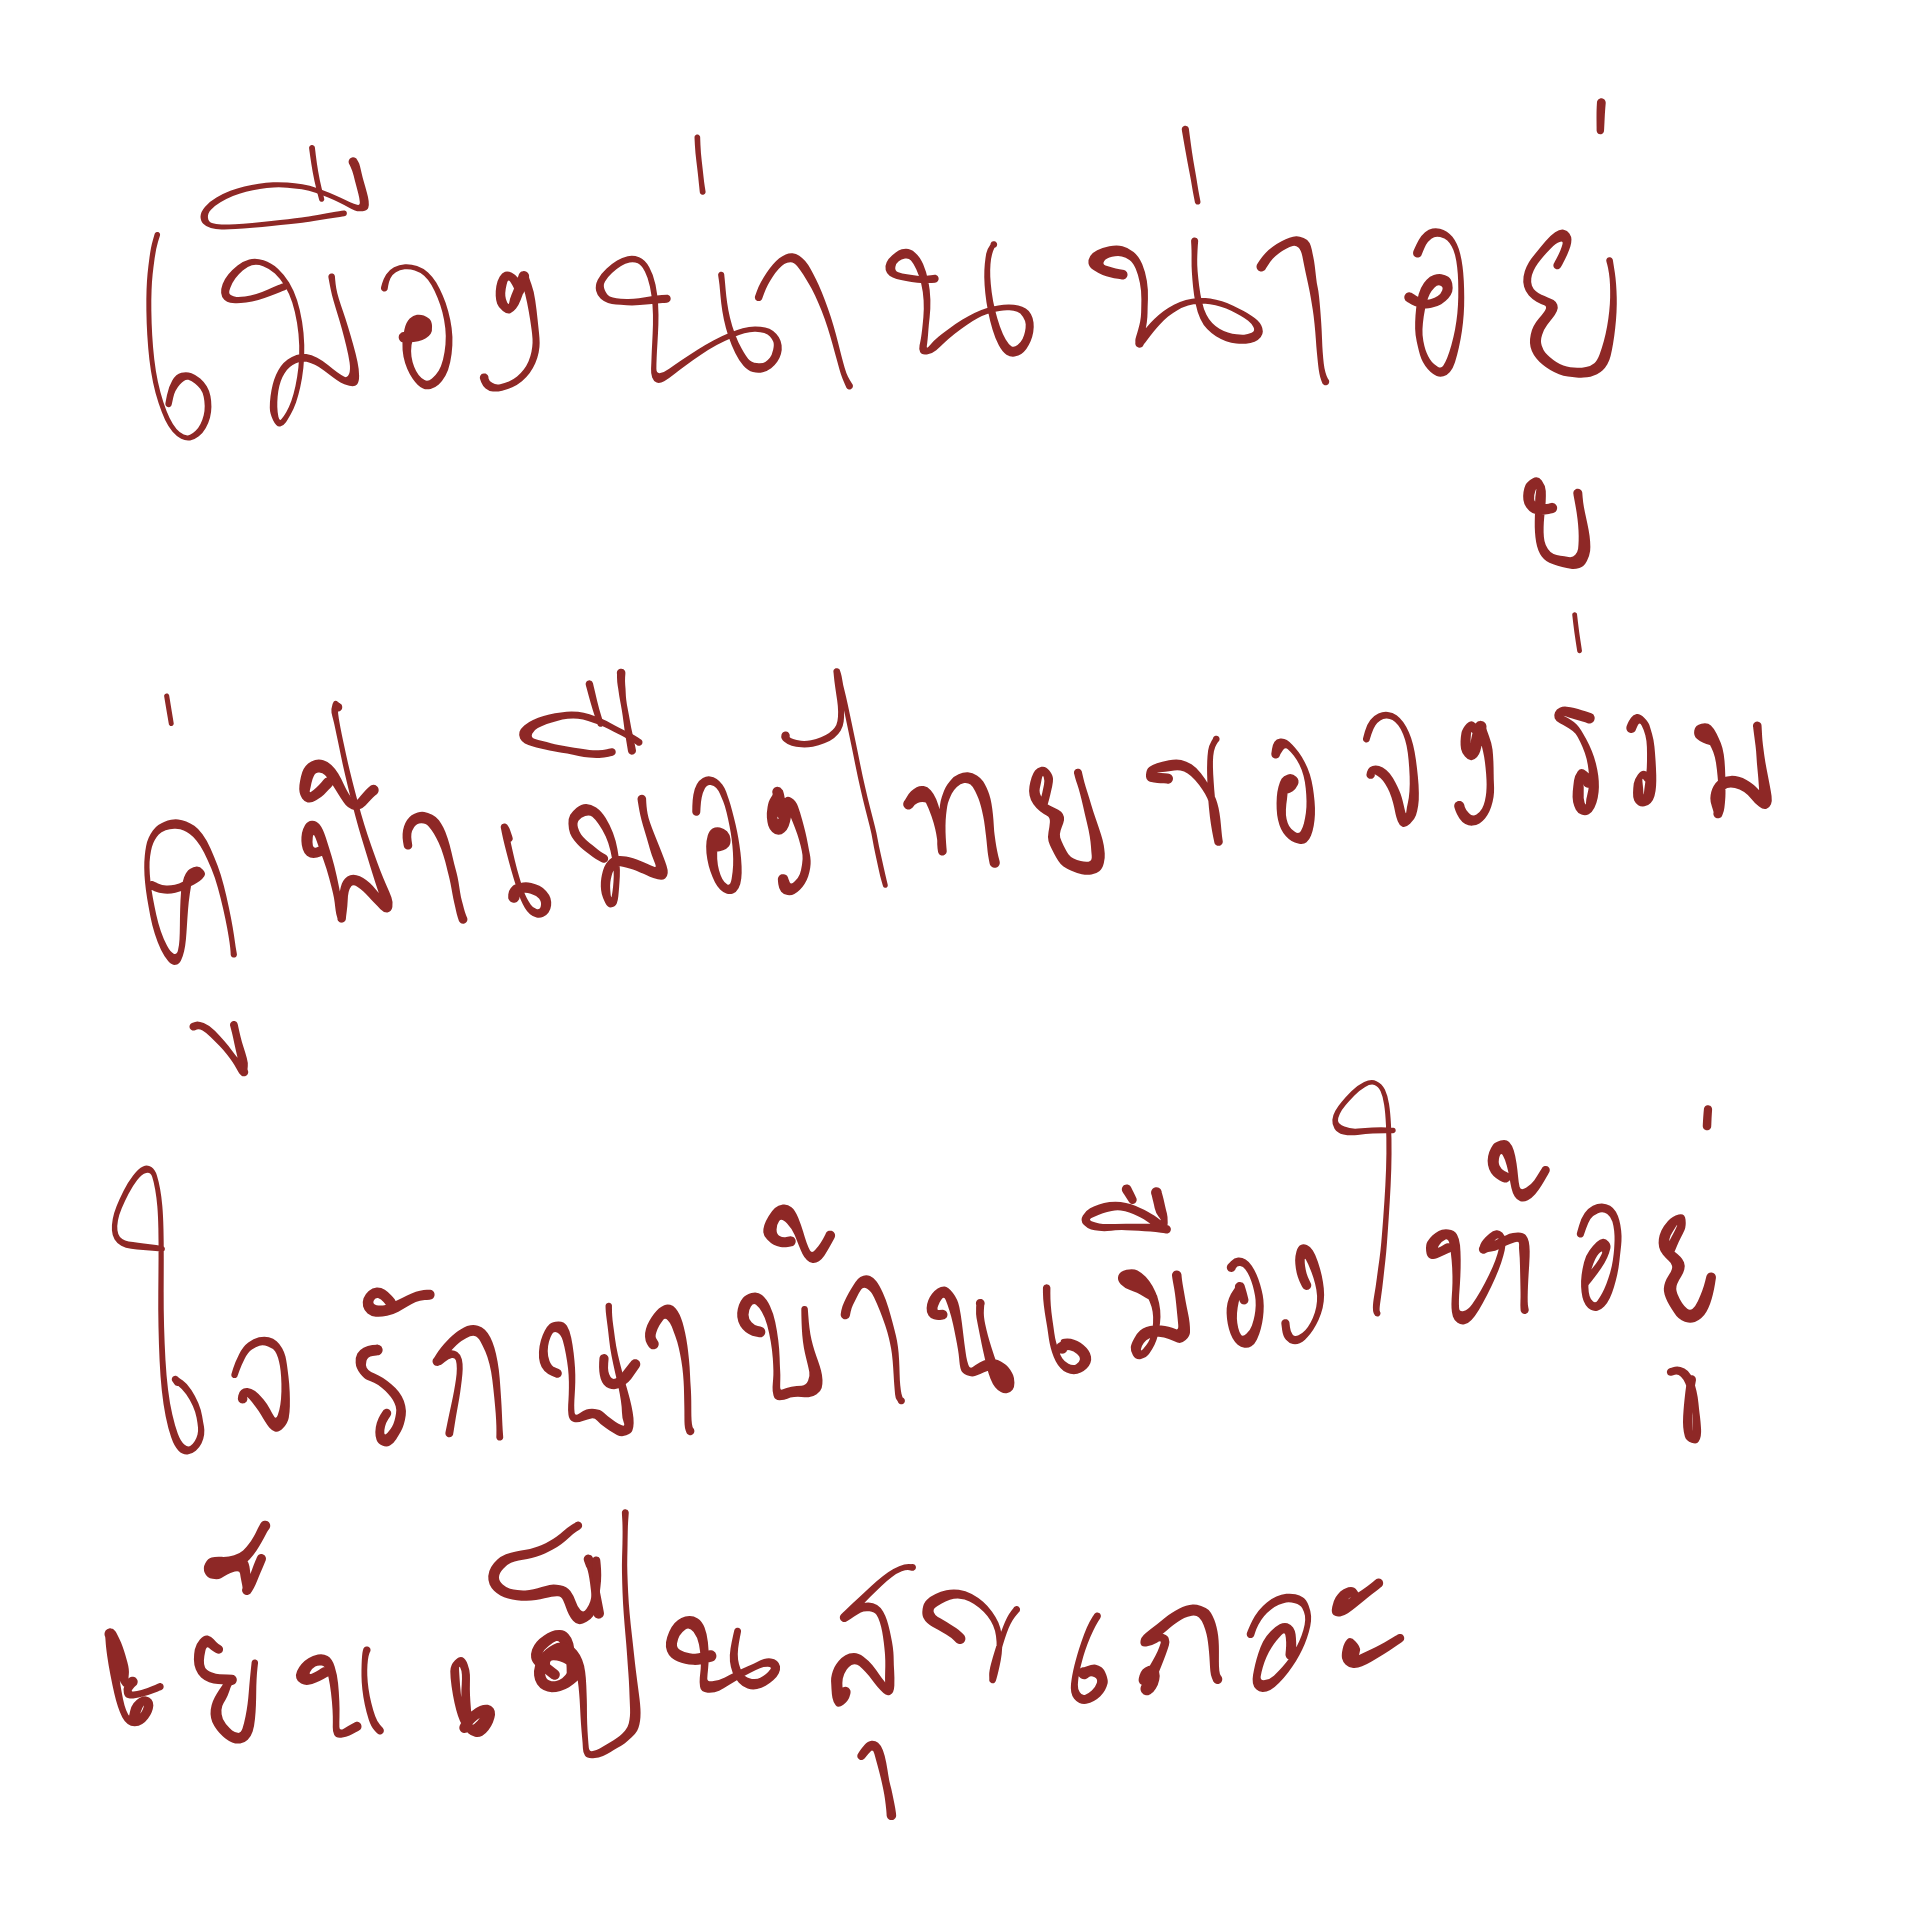 เมืองน่านน่าอยู่
คู่ฟ้าเมืองไทย ขอจงร่วม
ใจรักษาบ้านเมืองให้อยู่
เย็นเป็นสุขเถอะ